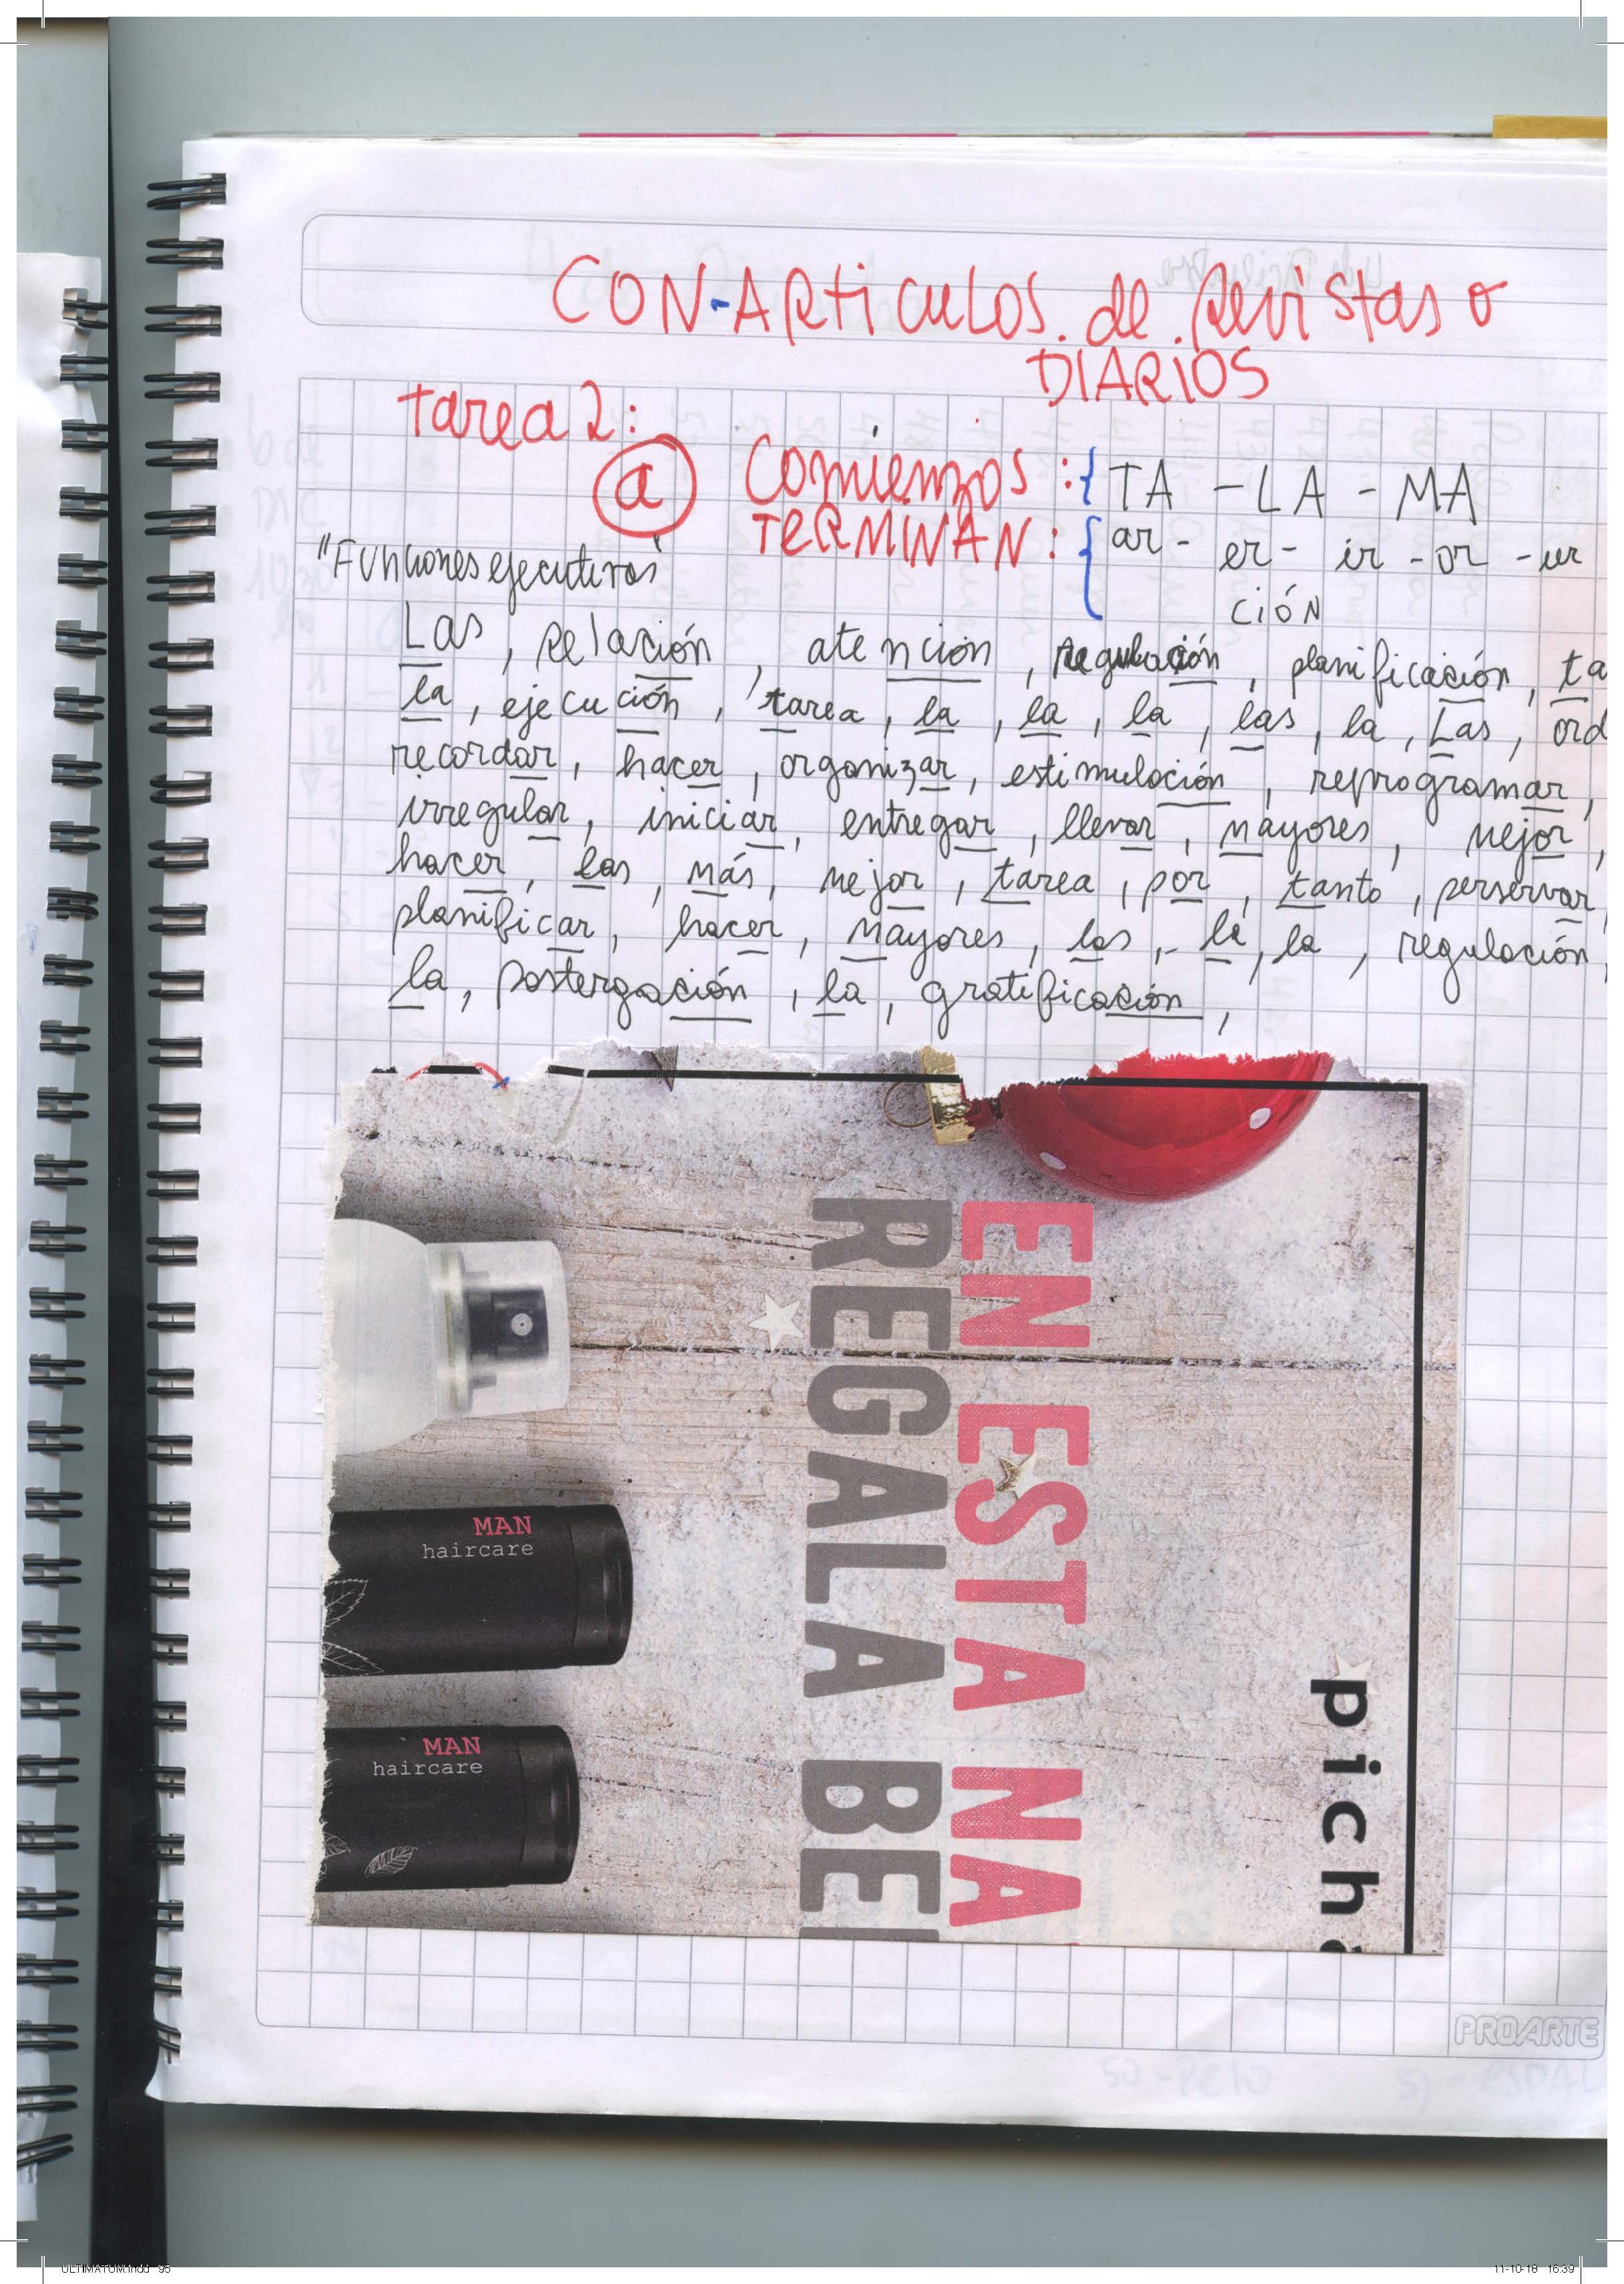 CON-ARTiCULOS de Revistas o
DIARIOS
tarea 2:
a Comienzos : { TA - LA - MA
TERMINAN : { ar - er - ir - or - ur
"Funciones ejecutivas"
CIÓN
Las, Relación, atención, regulación, planificación, ta
la, ejecución, tarea, la, la, la, las, la, Las, ord
recordar, hacer, organizar, estimulación, reprogramar,
irregular, iniciar, entregar, llevar, mayores, mejor,
hacer, las, más, mejor, tarea, por, tanto, perservar,
planificar, hacer, mayores, las, la, la, regulación,
la, postergación, la, gratificación,
EN ESTA NA
REGALA BE
pich
MAN
haircare
MAN
haircare
PROARTE
ULTIMATUM.indd 95
11-10-18 16:39